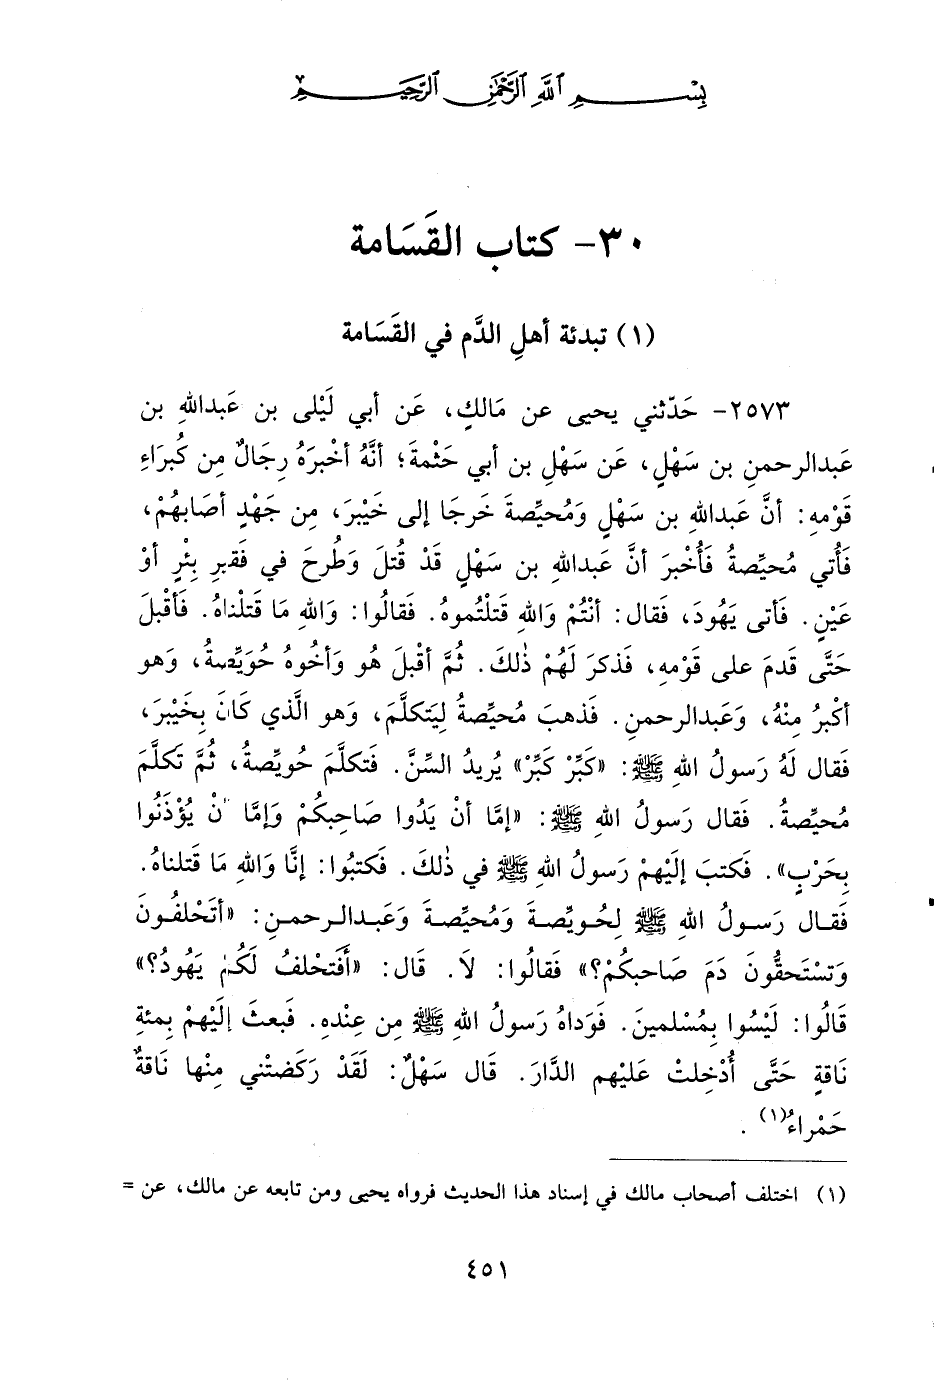 بِسْمِ اللَّهِ الرَّحْمَٰنِ الرَّحِيمِ
٣٠- كتاب القَسَامة
(١) تبدئة أهلِ الدَّم في القَسَامة
٢٥٧٣- حَدّثني يحيى عن مَالكٍ، عَن أبي لَيْلى بن عَبداللهِ بن
عَبدالرحمنِ بن سَهْلٍ، عَن سَهْلِ بن أبي حَثْمةَ؛ أنَّهُ أخْبرَهُ رِجَالٌ مِن كُبرَاءِ
قَوْمهِ: أنَّ عَبداللهِ بن سَهْلٍ وَمُحيِّصةَ خَرجَا إلى خَيْبرَ، مِن جَهْدٍ أصَابهُمْ،
فَأُتي مُحيِّصةُ فَأُخْبرَ أنَّ عَبداللهِ بن سَهْلٍ قَدْ قُتلَ وَطُرحَ في فَقيرِ بِئْرٍ أوْ
عَيْنٍ. فَأتى يَهُودَ، فَقال: أنْتُمْ وَاللهِ قَتلْتُموهُ. فَقالُوا: وَاللهِ مَا قَتلْناهُ. فَأقْبلَ
حَتَّى قَدمَ على قَوْمهِ، فَذكرَ لَهُمْ ذٰلكَ. ثُمَّ أقْبلَ هُو وَأخُوهُ حُويِّصةُ، وَهو
أكْبرُ مِنْهُ، وَعَبدالرحمنِ. فَذهبَ مُحيِّصةُ لِيَتكلَّمَ، وَهو الَّذي كَانَ بِخَيْبرَ،
فَقال لَهُ رَسولُ اللهِ ﷺ: «كَبِّرْ كَبِّرْ» يُريدُ السِّنَّ. فَتكلَّمَ حُويِّصةُ، ثُمَّ تَكلَّمَ
مُحيِّصةُ. فَقال رَسولُ اللهِ ﷺ: «إمَّا أنْ يَدُوا صَاحِبكُمْ وَإمَّا انْ يُؤْذَنُوا
بِحَرْبٍ». فَكتبَ إلَيْهِمْ رَسولُ اللهِ ﷺ في ذٰلكَ. فَكتبُوا: إنَّا وَاللهِ مَا قَتلناهُ.
فَقـال رَسـولُ اللهِ ﷺ لِحُـويِّصـةَ وَمُحيِّصـةَ وَعَبـدالـرحمـنِ: «أتَحْلفُـونَ
وَتَسْتَحقُّونَ دَمَ صَاحبكُمْ؟» فَقالُوا: لاَ. قَال: «أَفَتحْلفُ لَكُمْ يَهُودُ؟»
قَالُوا: لَيْسُوا بِمُسْلمينَ. فَوَداهُ رَسولُ اللهِ ﷺ مِن عِنْدهِ. فَبعثَ إلَيْهِمْ بِمئةِ
نَاقةٍ حَتَّى أُدْخِلتْ عَليْهِم الدَّارَ. قَال سَهْلٌ: لَقَدْ رَكَضتْني مِنْها نَاقةٌ
حَمْراءُ(١).
(١) اختلف أصحاب مالك في إسناد هذا الحديث فرواه يحيى ومن تابعه عن مالك، عن =
٤٥١